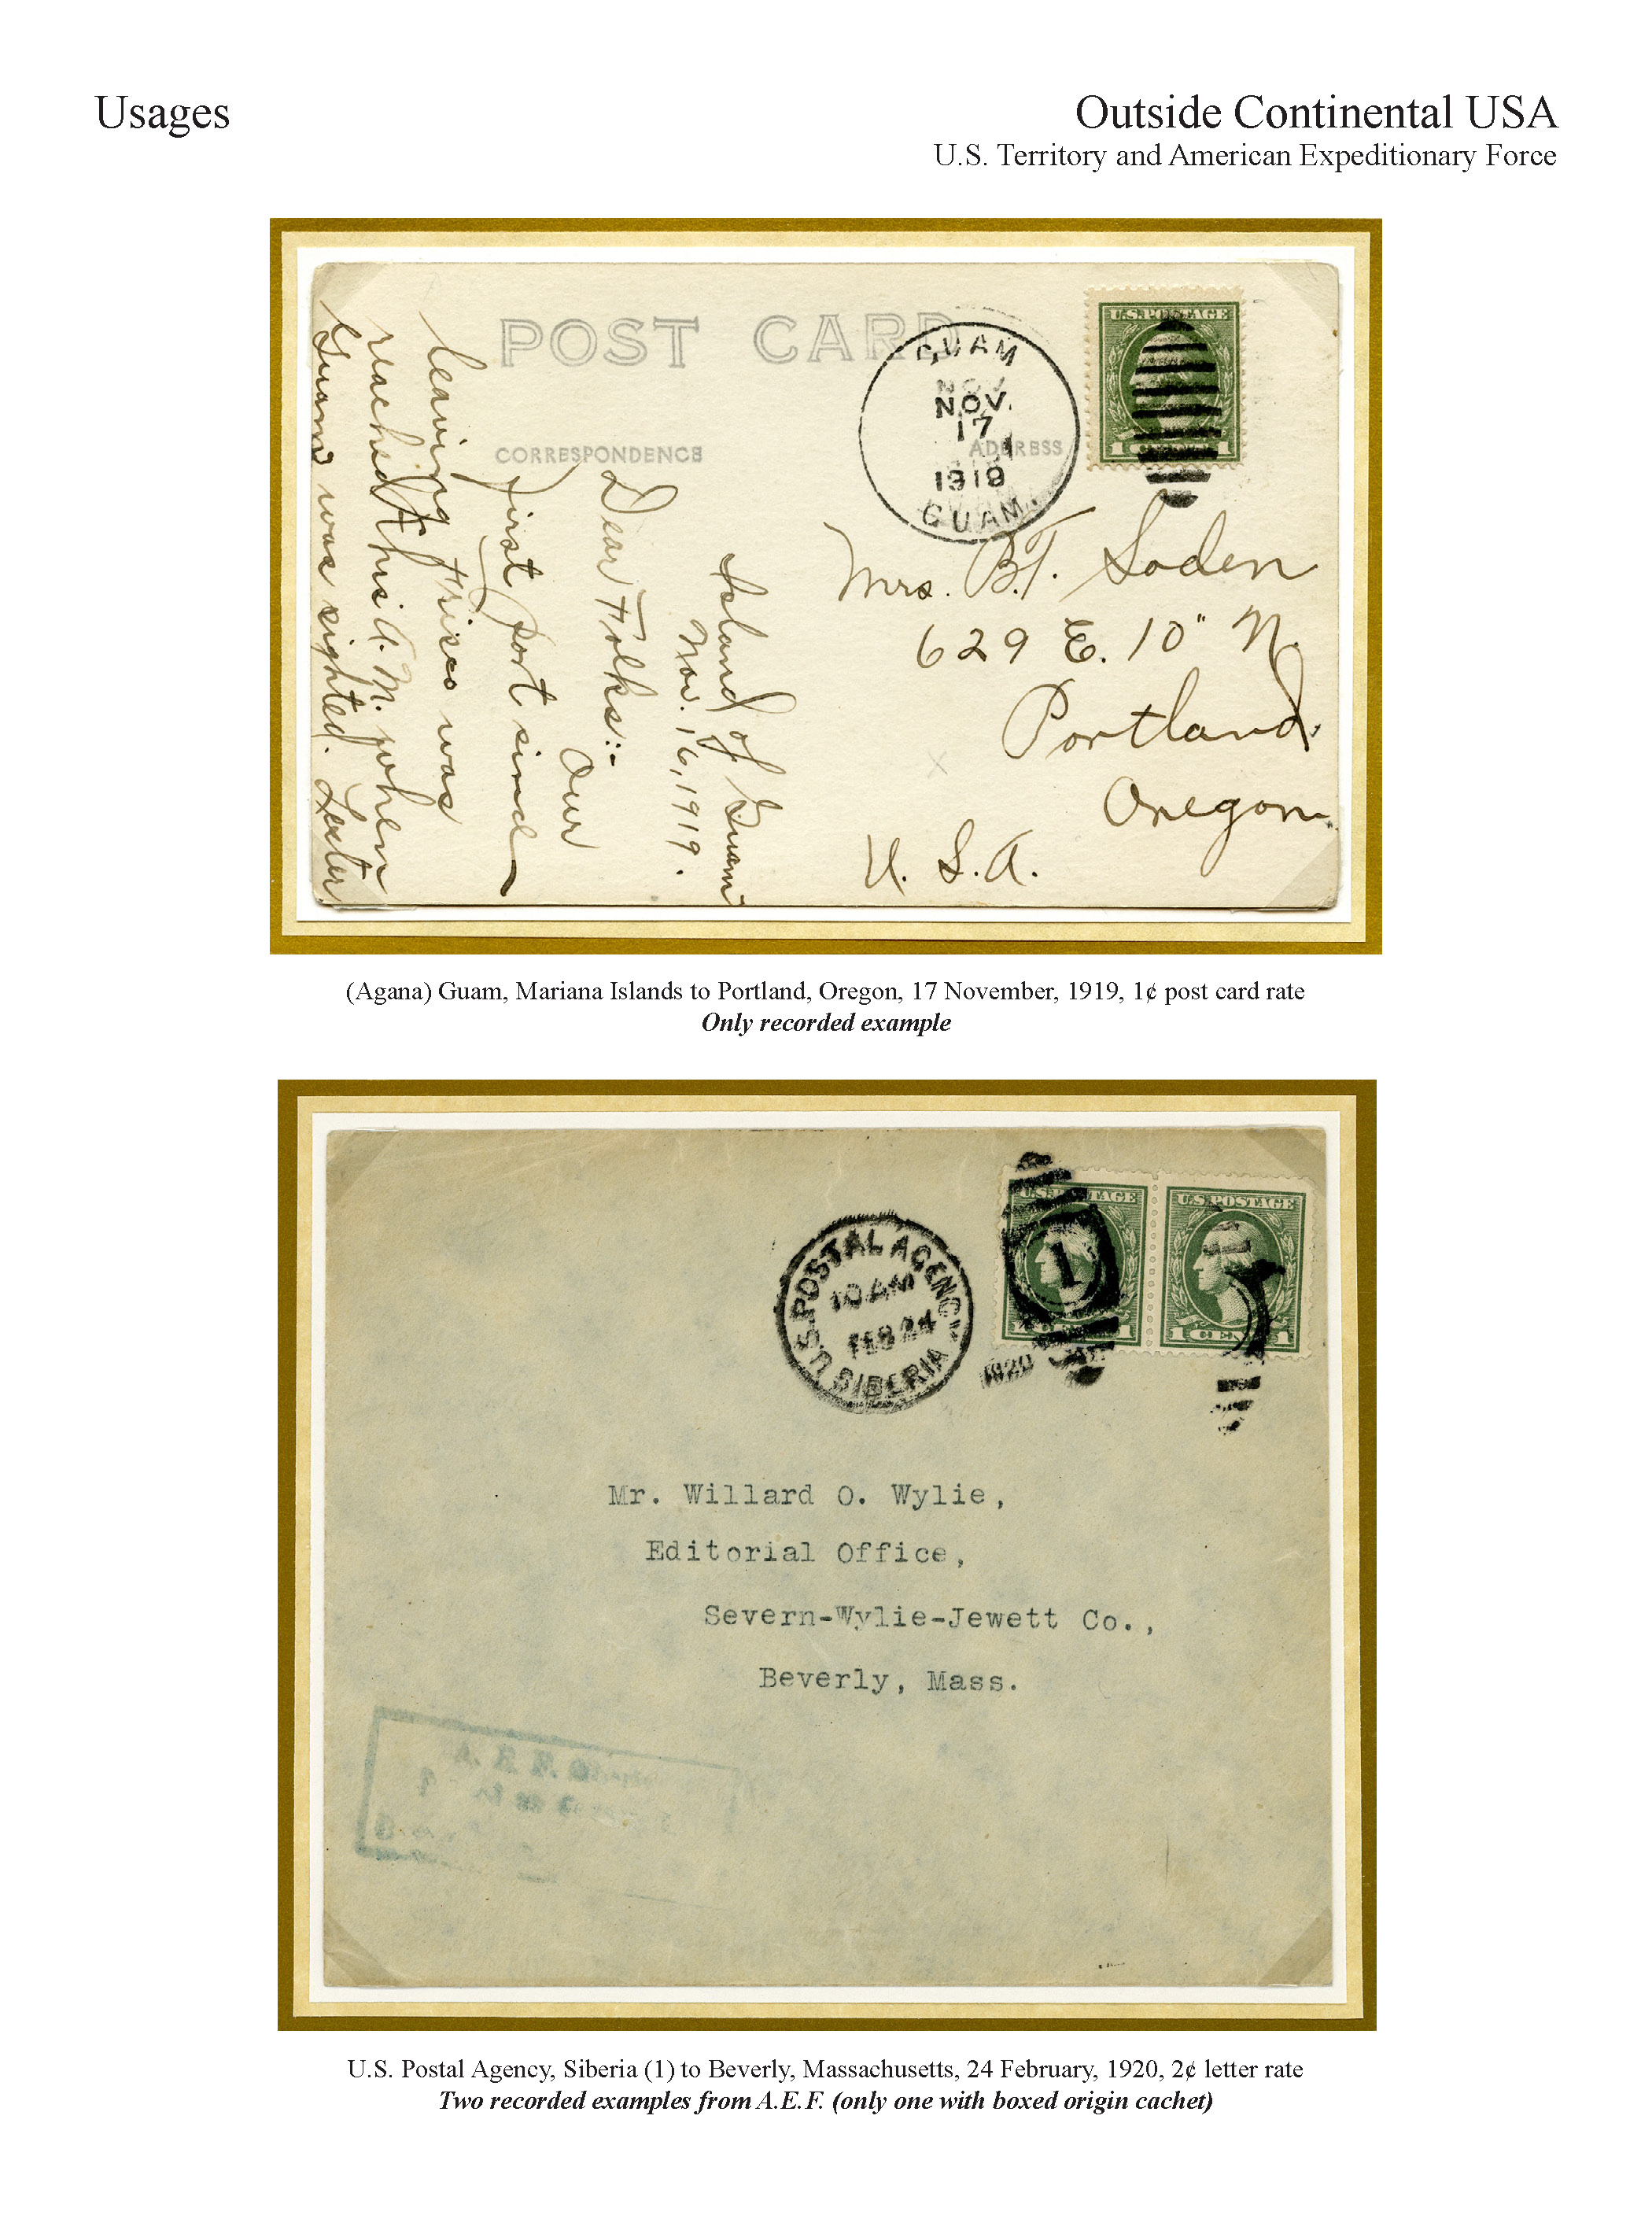 Usages
Outside Continental USA
U.S. Territory and American Expeditionary Force
POST CARD
CORRESPONDENCE
ADDRESS
GUAM
NOV
NOV.
17
1
1919
GUAM.
U.S. POSTAGE
1 1
Island of Guam
Nov. 16, 1919.
Dear Folks:-
Our
first port since
leaving Frisco was
reached this A.M. when
Guam was sighted. Lester
Mrs. B.T. Soden
629 E. 10" N.
Portland.
Oregon.
U. S. A.
(Agana) Guam, Mariana Islands to Portland, Oregon, 17 November, 1919, 1¢ post card rate
Only recorded example
U.S. POSTAL AGENCY
10 AM
FEB 24
SIBERIA
1920
1
1
U.S. POSTAGE
1
U.S. POSTAGE
1 CENT 1
Mr. Willard O. Wylie,
Editorial Office,
Severn-Wylie-Jewett Co.,
Beverly, Mass.
U.S. Postal Agency, Siberia (1) to Beverly, Massachusetts, 24 February, 1920, 2¢ letter rate
Two recorded examples from A.E.F. (only one with boxed origin cachet)